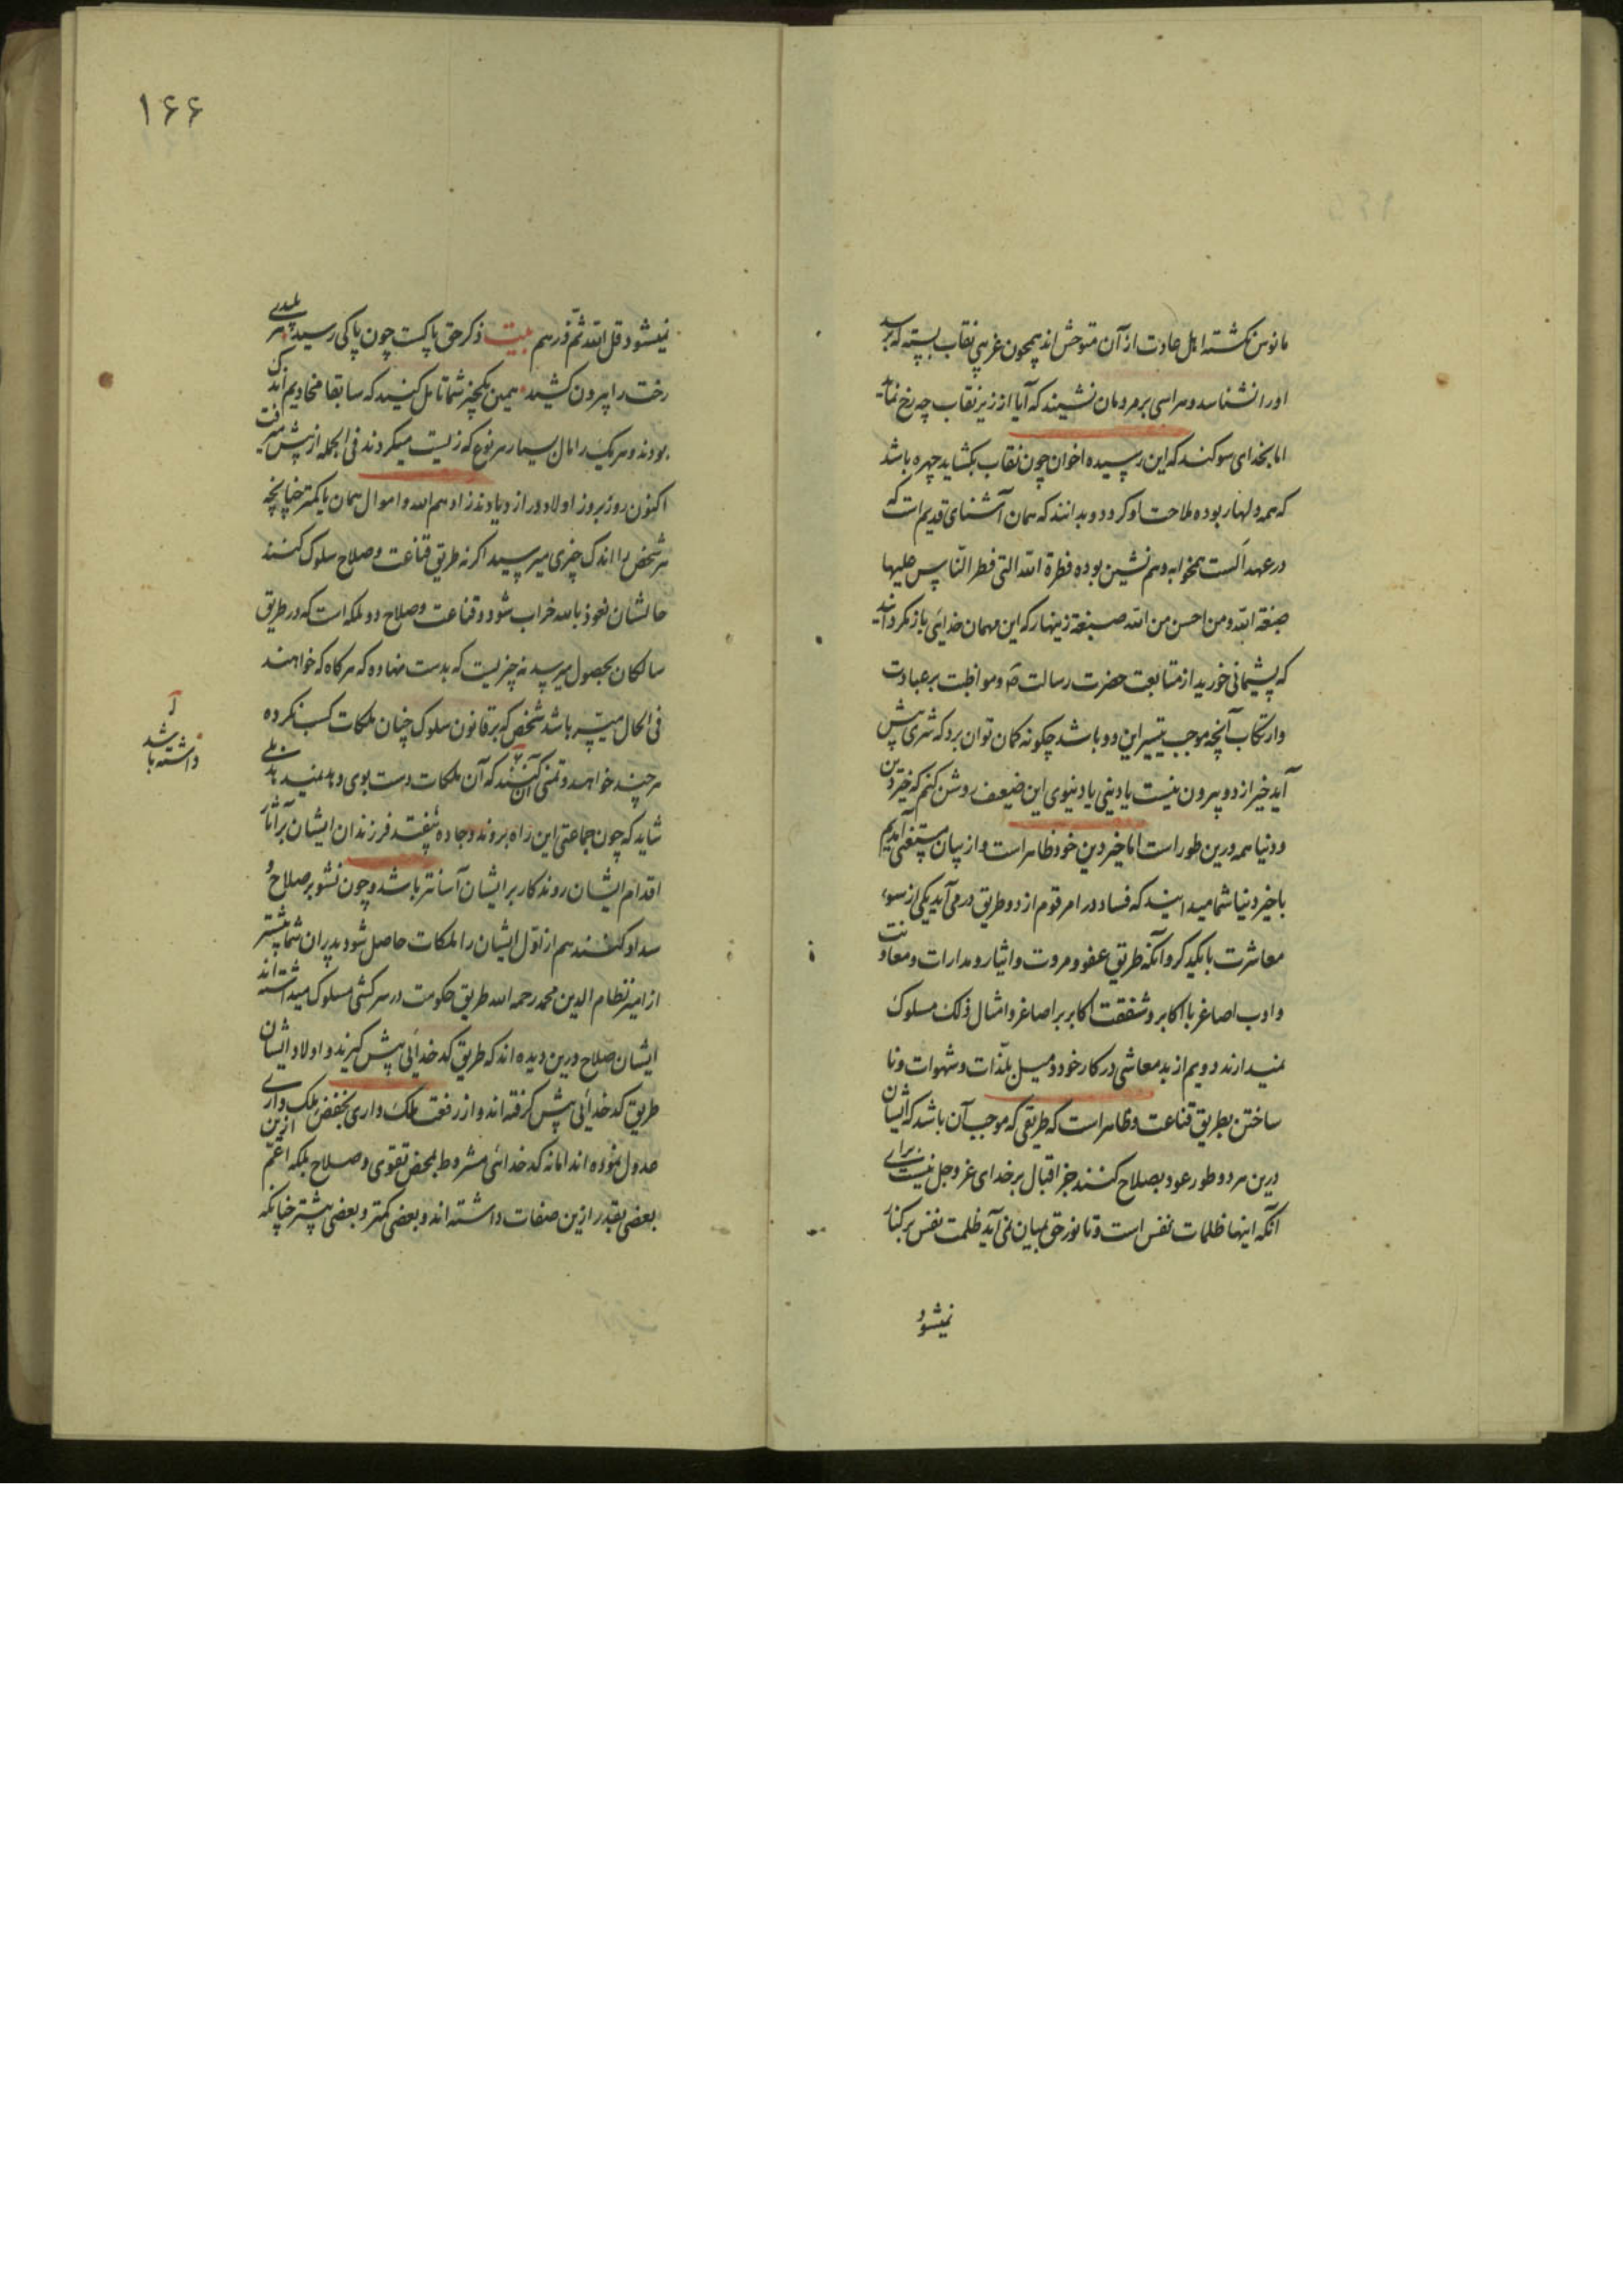 مانوس نگشته اهل عادت از آن متوحش اند همچون غریبی نقاب بسته که برسد
اورا نشناسد و هراسی بر مردمان نشیند که آیا از زیر نقاب چه رخ نماید
اما بخدای سوکند که این رسیده اخوان چون نقاب بکشاید چهره باشد
که همه دلها ربوده ملاحت او کردد و بدانند که همان آشنای قدیم است که
در عهد الست همخوابه و هم نشین بوده فطرة الله التی فطر الناس علیها
صبغة الله و من احسن من الله صبغة زینهار که این مهمان خدائی باز نکردانید
که پشیمانی خورید از متابعت حضرت رسالت و مواظبت بر عبادت
وارتکاب آنچه موجب تیسیر این دو باشد چکونه کمان توان برد که شری پیش
آید خیر از دو بیرون نیست یا دینی یا دنیوی این ضعیف روشن کنم که خیر دین
و دنیا همه درین طور است اما خیر دین خود ظاهر است و از بیان مستغنی آمدیم
با خیر دنیا شما میدانید که فساد در امر قوم از دو طریق در می آید یکی از سوء
معاشرت بایکدیکر و آنکه طریق عفو و مروت و ایثار و مدارات و معاونت
و ادب اصاغر با اکابر و شفقت اکابر بر اصاغر و امثال ذلک مسلوک
نمیدارند دویم از بد معاشی در کار خود و میل بلذات و شهوات و نا
ساختن بطریق قناعت و ظاهر است که طریقی که موجب آن باشد که ایشان
درین هر دو طور عود بصلاح کنند جز اقبال بر خدای عز و جل نیست برای
آنکه اینها ظلمات نفس است و تا نور حق بمیان نمی آید ظلمت نفس بر کنار
نمیشود
۱۶۶
نمیشود قل الله ثم ذرهم بیت ذکر حق پاکست چون پاکی رسید هر پلیدی
رخت را بیرون کشید همین یکچیز شما تامل کنید که سابقا مخادیم اندک
بودند و هر یک را مال بسیار هر نوع که زیست میکردند فی الجمله از پیش میرفت
اکنون روز بروز اولاد در ازدیادند زادهم الله و اموال همان یا کمتر چنانچه
هر شخص را اندک چیزی میرسید اکر نه طریق قناعت و صلاح سلوک کنند
حالشان نعوذ بالله خراب شود و قناعت و صلاح دو ملکه است که در طریق
سالکان بحصول میرسد نه چیزیست که بدست نهاده که هر کاه که خواهند
فی الحال میسر باشد شخص که بر قانون سلوک چنان ملکات کسب نکرده
داشته باشد
هر چند خواهد و تمنی آن کند که آن ملکات دست بوی دهد نمیدهد بلی
شاید که چون جماعتی این راه بروند و جاده بیفتد فرزندان ایشان بر آثار
اقدام ایشان روند کار بر ایشان آسانتر باشد و چون نشو بر صلاح و
سداد کنند هم از اول ایشان را ملکات حاصل شود پدران شما پیشتر
از امیر نظام الدین محمد رحمه الله طریق حکومت و سرکشی مسلوک میداشته اند
ایشان صلاح درین دیده اند که طریق کدخدائی پیش کیرند و اولاد ایشان
طریق کدخدائی پیش کرفته اند و از رفعت ملک داری بخفض ملک داری
عدول نموده اند اما نه کدخدائی مشروط بمحض تقوی و صلاح بلکه اعم ازین
بعضی بقدر ازین صفات داشته اند و بعضی کمتر و بعضی بیشتر چنانکه